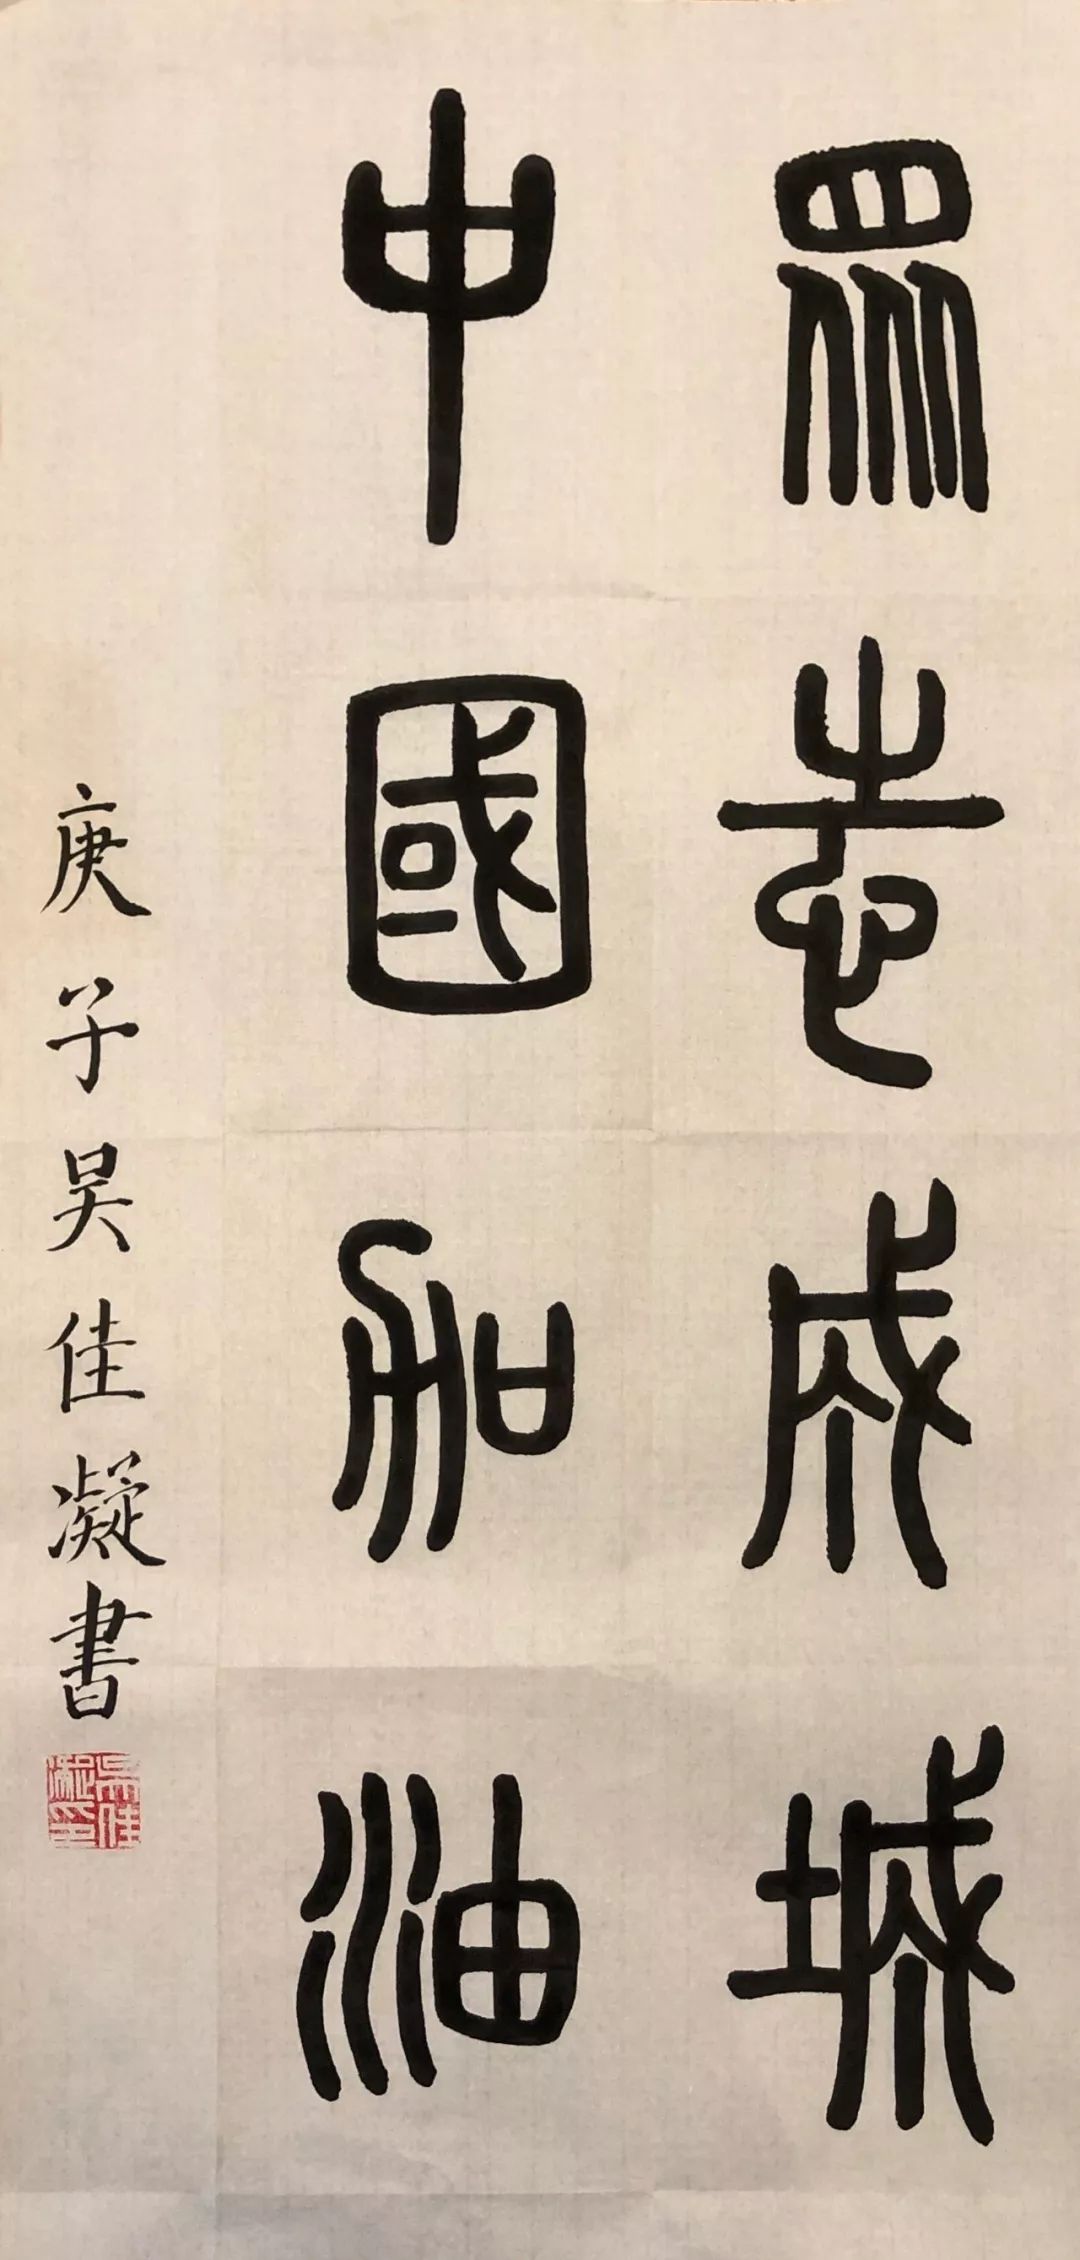 眾志成城
中國加油
庚子吴佳凝書
吴佳凝印